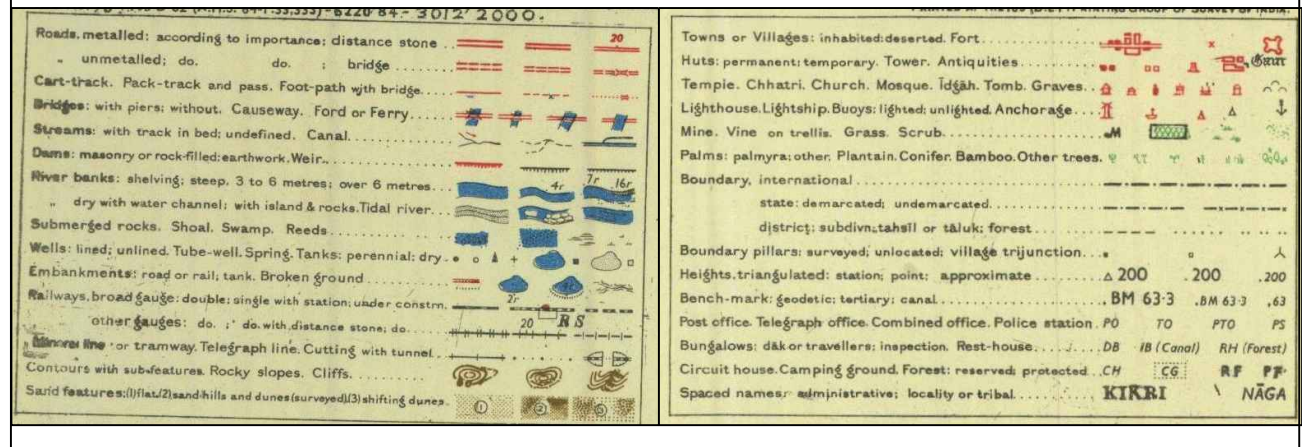 6220 84-3012'2000.
Roads, metalled: according to importance; distance stone .. 20
„ unmetalled; do. do. ; bridge
Cart-track. Pack-track and pass. Foot-path with bridge
Bridges: with piers; without. Causeway. Ford or Ferry
Streams: with track in bed; undefined. Canal
Dams: masonry or rock-filled; earthwork. Weir
River banks: shelving; steep, 3 to 6 metres; over 6 metres ... 4r 7r .16r
„ dry with water channel; with island & rocks. Tidal river
Submerged rocks. Shoal. Swamp. Reeds
Wells: lined; unlined. Tube-well. Spring. Tanks: perennial; dry
Embankments: road or rail; tank. Broken ground 2r 4r
Railways, broad gauge: double; single with station; under constrn. RS
other gauges: do. ; do. with distance stone; do. 20
Mineral line or tramway. Telegraph line. Cutting with tunnel
Contours with sub-features. Rocky slopes. Cliffs
Sand features: (1) flat. (2) sand-hills and dunes (surveyed). (3) shifting dunes. 1 2 3
GROUP OF SURVEY OF INDIA.
Towns or Villages: inhabited: deserted. Fort
Huts: permanent; temporary. Tower. Antiquities
Temple. Chhatri. Church. Mosque. Īdgāh. Tomb. Graves
Lighthouse. Lightship. Buoys: lighted; unlighted. Anchorage
Mine. Vine on trellis. Grass. Scrub
Palms: palmyra; other. Plantain. Conifer. Bamboo. Other trees.
Boundary, international
state: demarcated; undemarcated
district; subdivn; tahsīl or tāluk; forest
Boundary pillars: surveyed; unlocated; village trijunction
Heights, triangulated: station; point; approximate 200 .200 .200
Bench-mark: geodetic; tertiary; canal .BM 63·3 .BM 63·3 .63
Post office. Telegraph office. Combined office. Police station. PO TO PTO PS
Bungalows: dāk or travellers; inspection. Rest-house DB IB (Canal) RH (Forest)
Circuit house. Camping ground. Forest: reserved; protected CH CG RF PF
Spaced names: administrative; locality or tribal KIKRI NĀGA